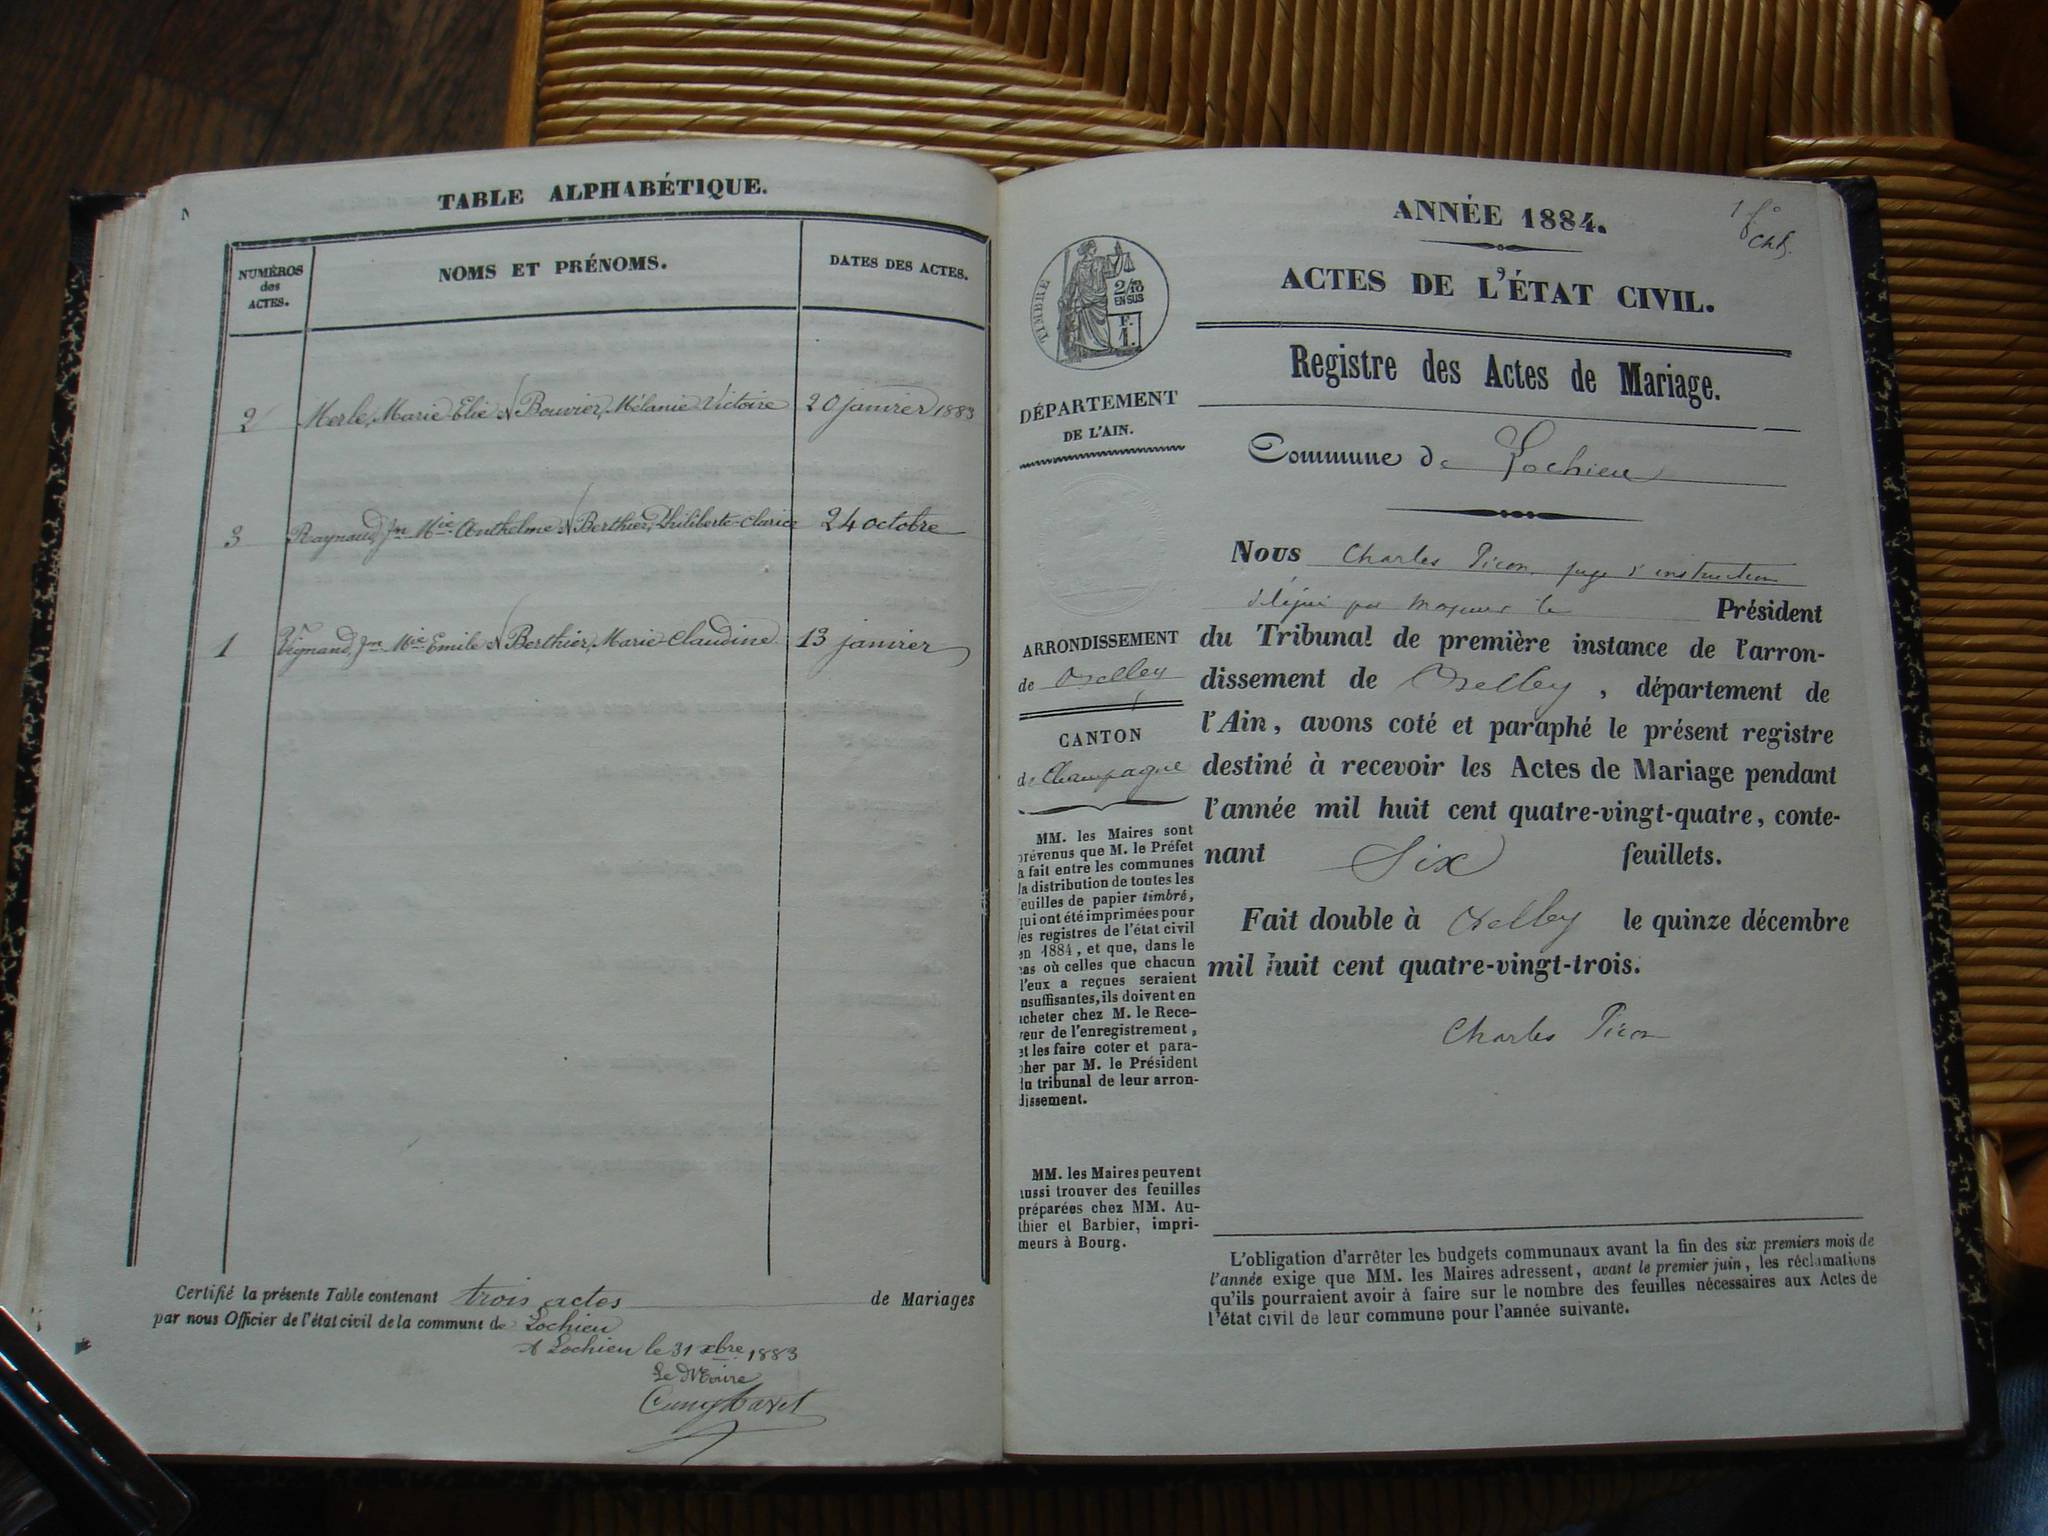 TABLE ALPHABÉTIQUE.
NUMÉROS
des
ACTES.
NOMS ET PRÉNOMS.
DATES DES ACTES.
2 Merle, Marie Elie & Bouvier, Mélanie Victoire 20 janvier 1883
3 Raynaud, Jn Mie Anthelme & Berthier, Philiberte-Clarice 24 octobre
1 Vignand, Jn Mie Emile & Berthier, Marie Claudine 13 janvier
Certifié la présente Table contenant trois actes de Mariages
par nous Officier de l'état civil de la commune de Lochieu
A Lochieu le 31 xbre 1883
Le Maire
ANNÉE 1884.
1er fo
ChP.
ACTES DE L'ÉTAT CIVIL.
TIMBRE
2/10
EN SUS
F.
1.
Registre des Actes de Mariage.
DÉPARTEMENT
DE L'AIN.
Commune de Lochieu
Nous Charles Picon, juge d'instruction
délégué par Monsieur le Président
du Tribunal de première instance de l'arron-
dissement de Belley, département de
l'Ain, avons coté et paraphé le présent registre
destiné à recevoir les Actes de Mariage pendant
l'année mil huit cent quatre-vingt-quatre, conte-
nant Six feuillets.
Fait double à Belley le quinze décembre
mil huit cent quatre-vingt-trois.
Charles Picon
ARRONDISSEMENT
de Belley
CANTON
de Champagne
MM. les Maires sont
prévenus que M. le Préfet
a fait entre les communes
la distribution de toutes les
feuilles de papier timbré,
qui ont été imprimées pour
les registres de l'état civil
en 1884, et que, dans le
cas où celles que chacun
d'eux a reçues seraient
insuffisantes, ils doivent en
acheter chez M. le Rece-
veur de l'enregistrement,
et les faire coter et para-
pher par M. le Président
du tribunal de leur arron-
dissement.
MM. les Maires peuvent
aussi trouver des feuilles
préparées chez MM. Au-
thier et Barbier, impri-
meurs à Bourg.
L'obligation d'arrêter les budgets communaux avant la fin des six premiers mois de
l'année exige que MM. les Maires adressent, avant le premier juin, les réclamations
qu'ils pourraient avoir à faire sur le nombre des feuilles nécessaires aux Actes de
l'état civil de leur commune pour l'année suivante.